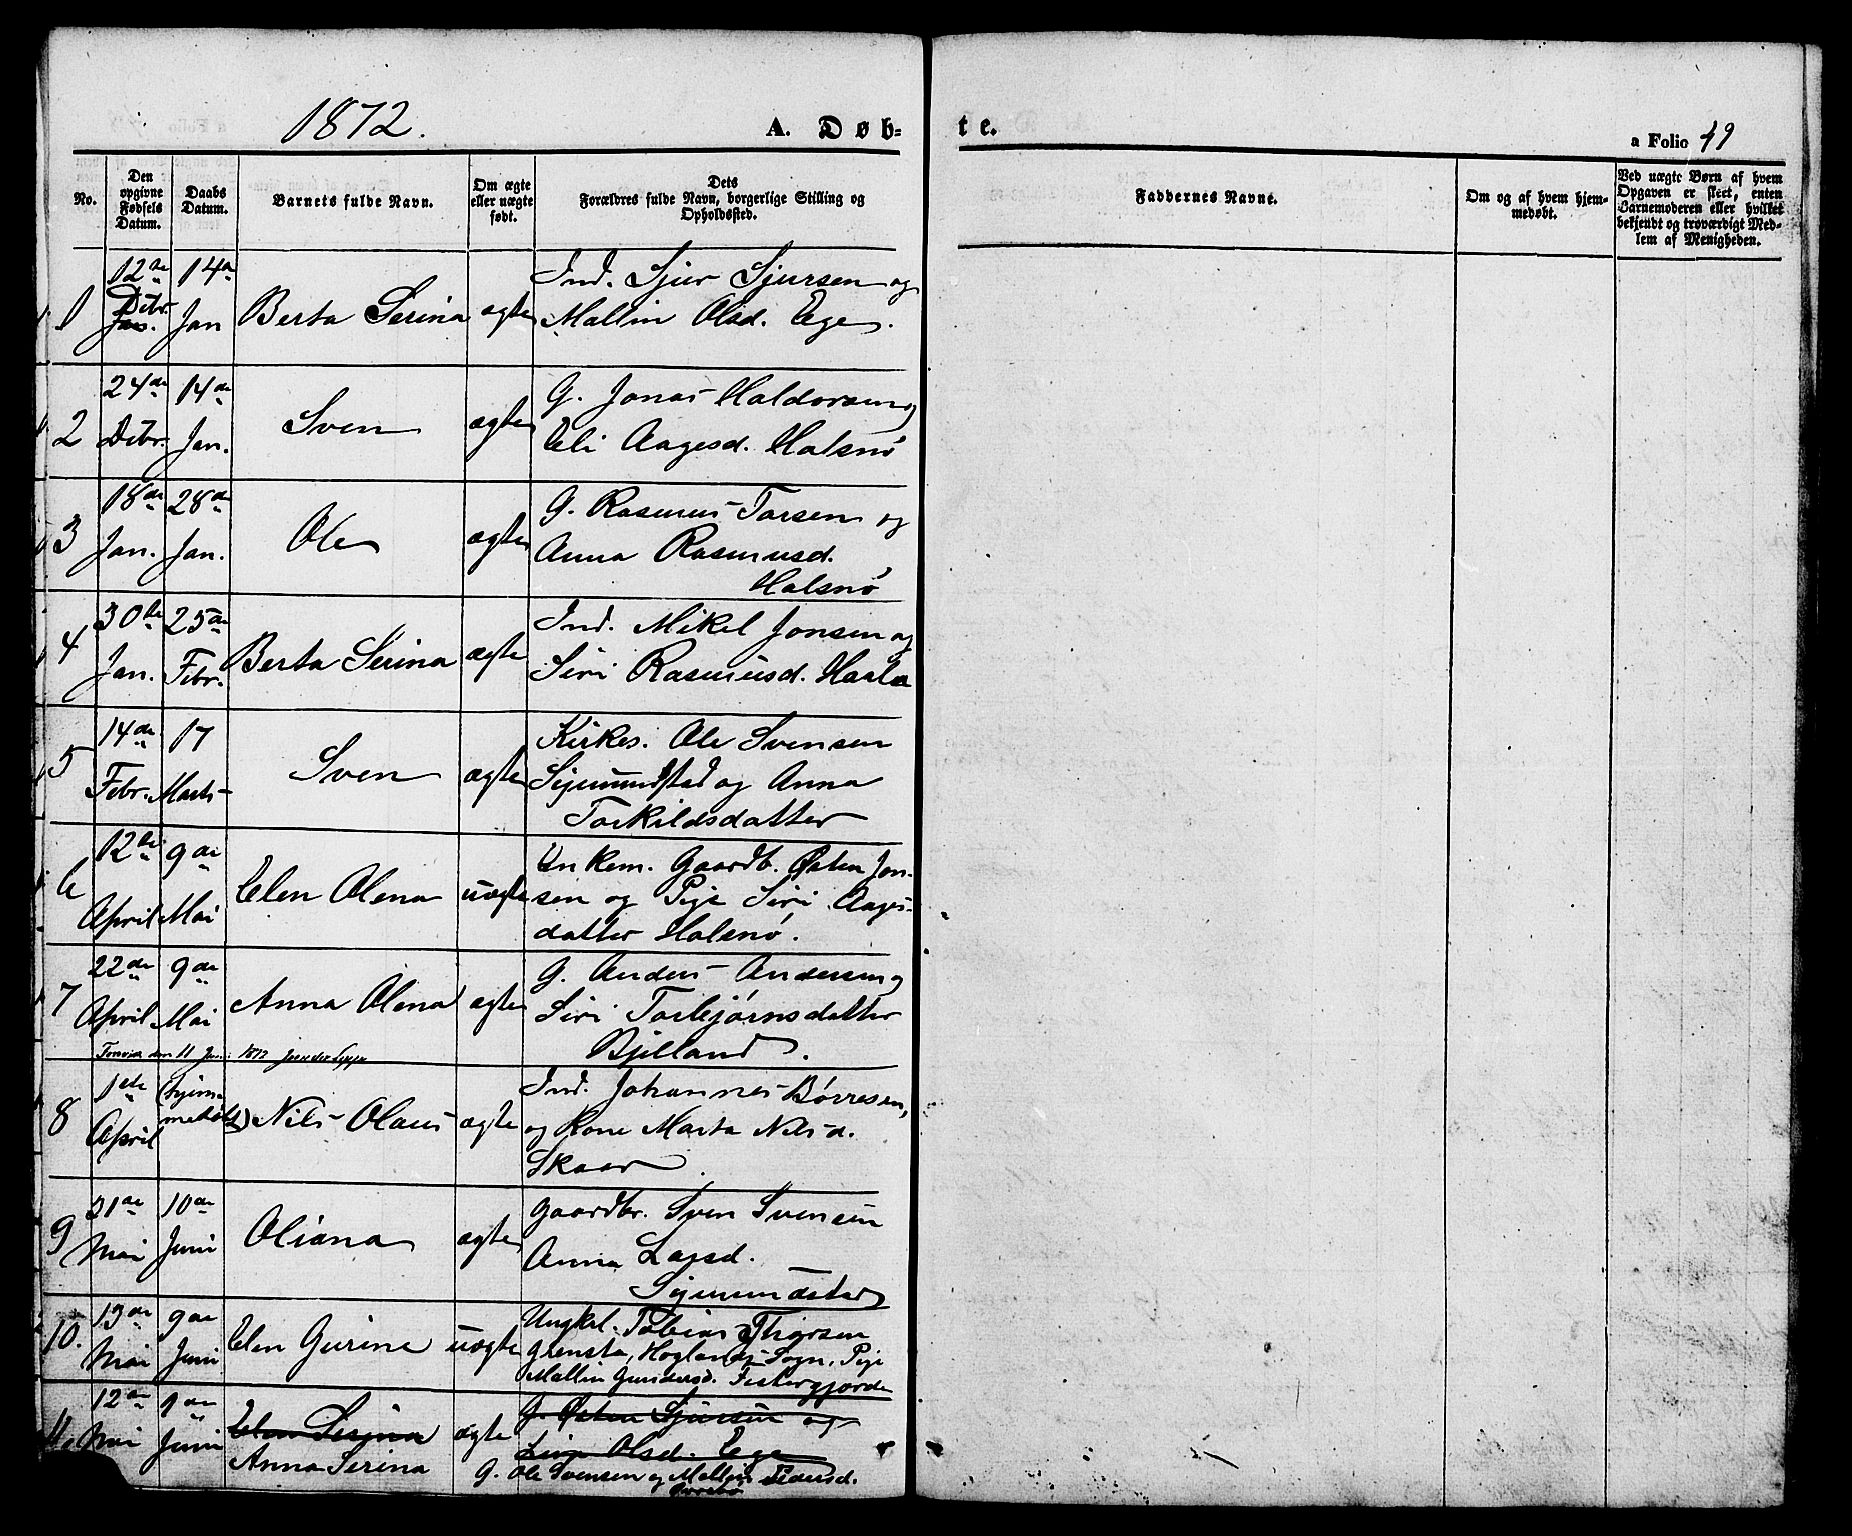 1872.
A. Døb-
te.
a Folio 49
No.
Den
opgivne
Fødsels
Datum.
Daabs
Datum.
Barnets fulde Navn.
Om ægte
eller uægte
født.
Dets
Forældres fulde Navn, borgerlige Stilling og
Opholdssted.
Faddernes Navne.
Om og af hvem hjem-
medøbt.
Ved uægte Børn af hvem
Opgaven er skeet, enten
Barnemoderen eller hvilket
bekjendt og troværdigt Med-
lem af Menigheden.
1 12te Debr. Jan. 14de Jan Berta Serina ægte Ind. Sjur Sjursen og
Mallin Olsd. Ege.
2 24de Debr. 14de Jan. Sven ægte G. Jonas Haldorsen og
Eli Aagesd. Halsnø
3 18de Jan. 28de Jan. Ole ægte G. Rasmus Torsen og
Anna Rasmusd.
Halsnø
4 30te Jan. 25de Febr. Berta Serina ægte Ind. Mikel Jonsen og
Siri Rasmusd. Haala
5 14de Febr. 17 Marts Sven ægte Kirkes. Ole Svensen
Sigmundstad og Anna
Torkildsdatter
6 12te April 9de Mai Elen Olena uægte Unkem. Gaardb. Østen Jon-
sen og Pige Siri Aages-
datter Halsnø.
7 22de April 9de Mai Anna Olena ægte G. Anders Andersen og
Siri Torbjørnsdatter
Bjelland.
den 11 1872
8 1ste April (hjem-
medøbt) Nils Olaus ægte Ind. Johannes Børresen,
og Kone Marta Nilsd.
Skaar.
9 21de Mai 10de Juni Oliana ægte Gaardbr. Sven Svensen
Anna Larsd.
Sigmundstad
10. 13de Mai 9de Juni Elen Gurine uægte Ungkl. Tobias Thorsen
Grensta, Hoglands Sogn, Pige
Mallin Gundersd. Fistergjorde
11 12de Mai 9de Juni Elen Serina ægte G. Østen Sjursen og
Lina Olsd. Ege
Anna Serina G. Ole Svensen og Mallin Pedersd.